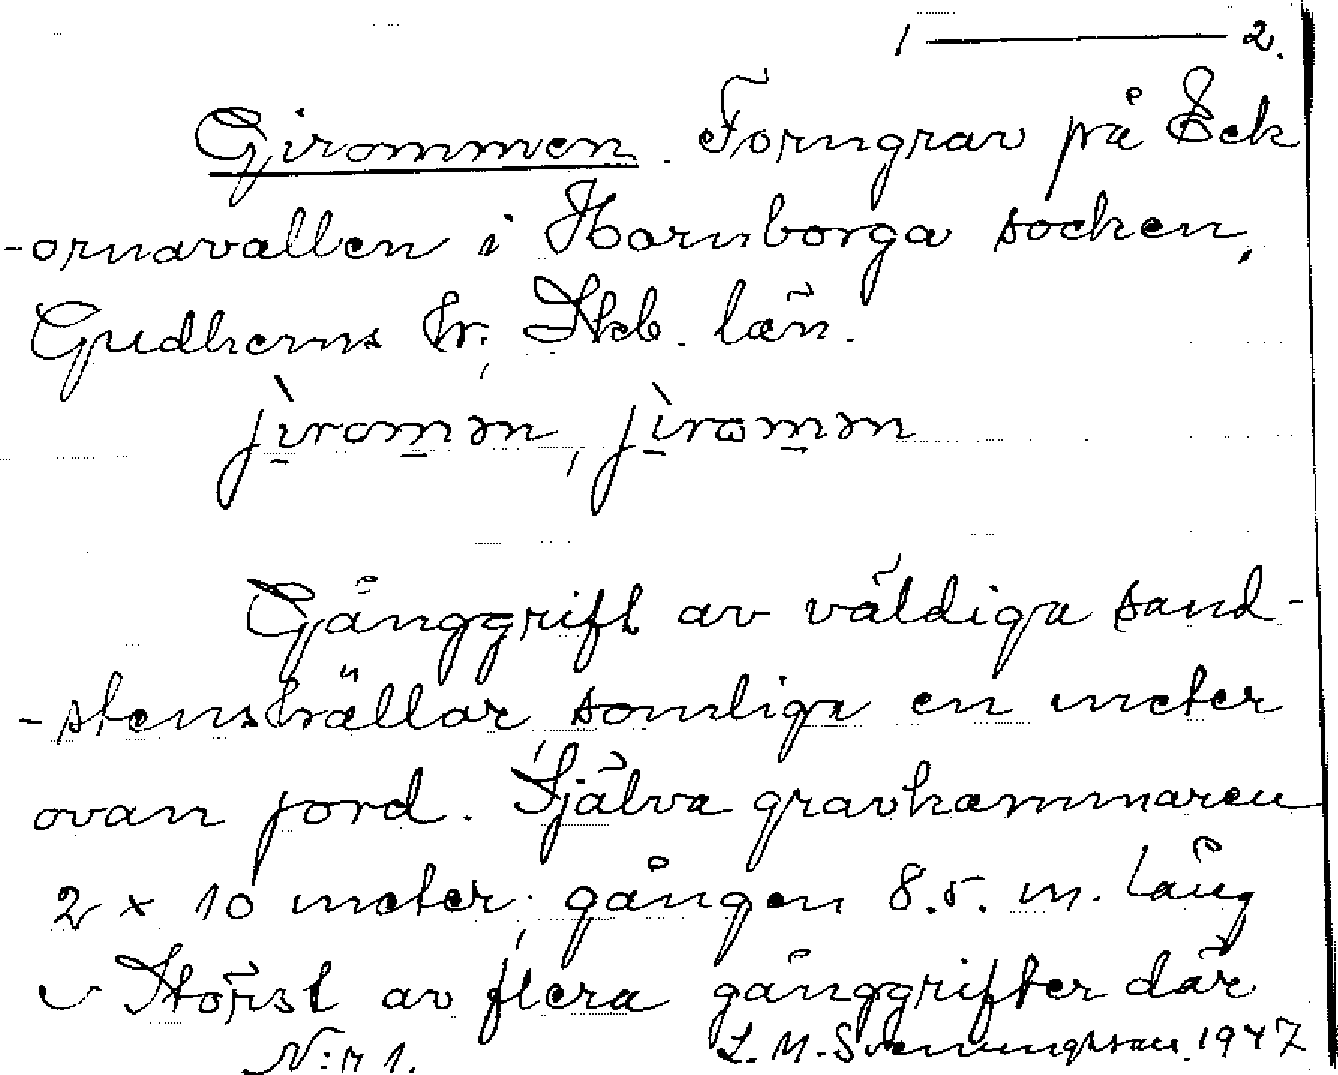 1 ——— 2.
Girommen. Forngrav på Eck
-ornavallen i Hornborga socken,
Gudhems hr; Skb. län.
jìromən, jìromən
Gånggrift av väldiga sand-
-stenshällar, somliga en meter
ovan jord. Själva gravkammaren
2 x 10 meter; gången 8.5. m. lång
Störst av flera gånggrifter där
N:r 1. L. M. Svenungsson 1947